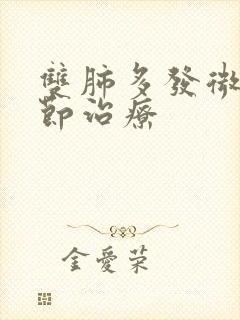 雙肺多發微
節治療
金愛荣